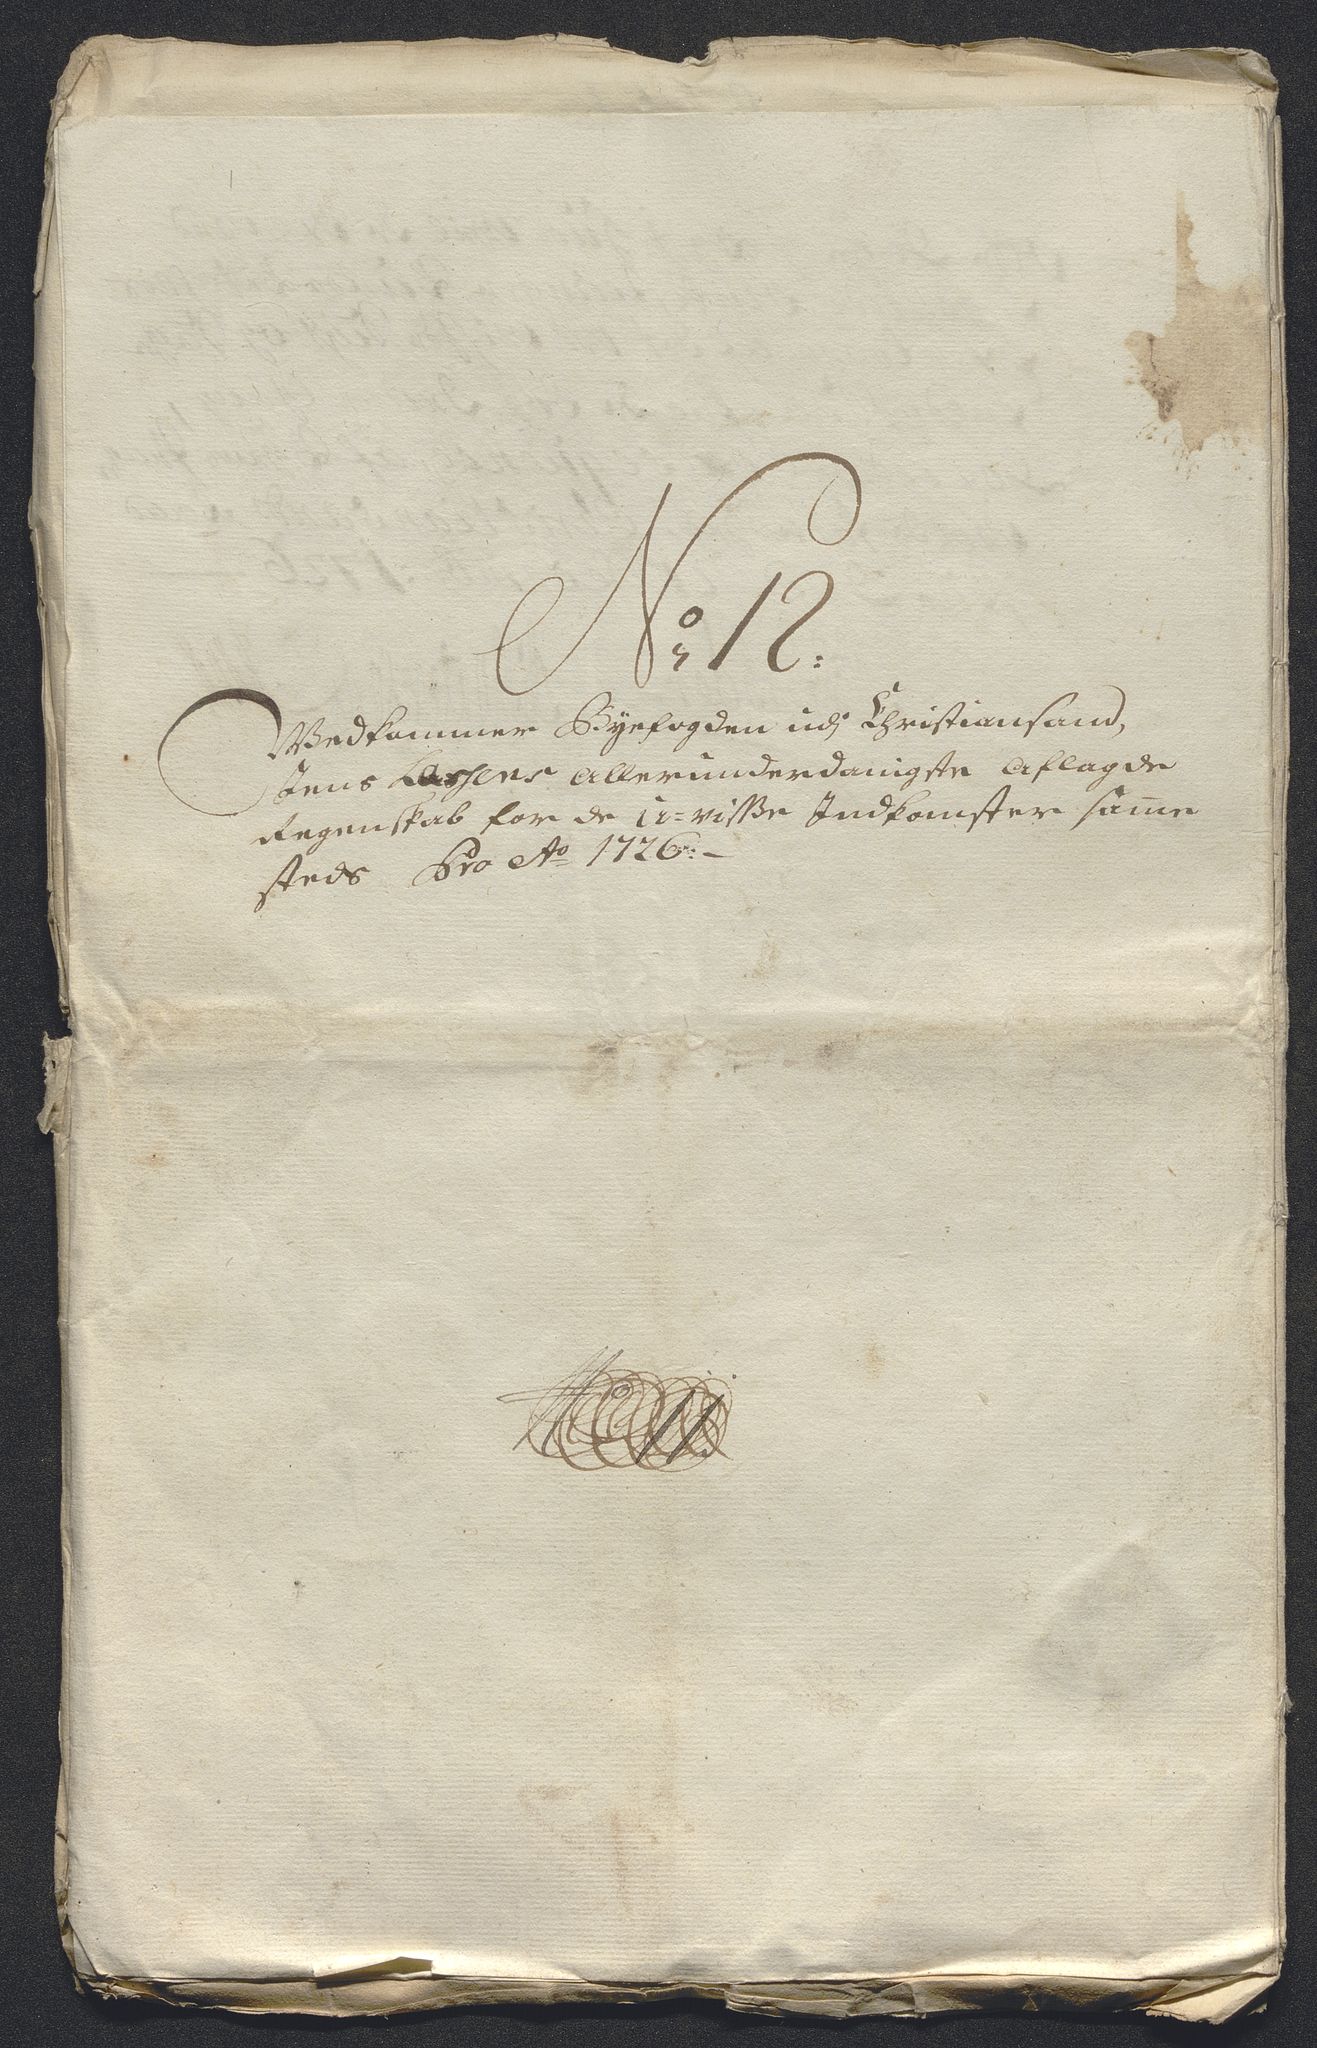 No 12:
Vedkommer Byefogden udj Christiansand,
Jens allerunderdanigste aflagde
Regenskab for de u=visse Indkomster samme
steds Pro Ao 1726:-